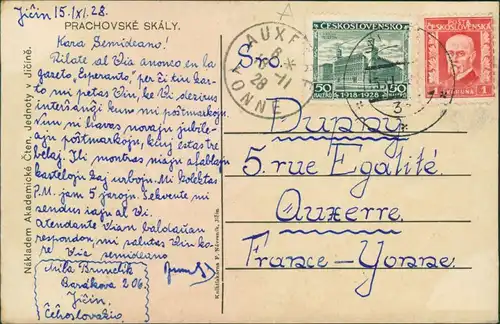 Jičín 15./XI.28.
PRACHOVSKÉ SKÁLY.
Kara Semideano!
Rilate al Via anonco en la
gazeto „Esperanto", per ĉi tiu kar-
to mi petas Vin, ke Vi dezirus
interŝanĝi kun mi poŝtmarkojn.
Nun ni havas novajn jubile-
ajn poŝtmarkojn, kiuj estas tre
belaj. Ili montras niajn
kastelojn kaj urbojn. Mi kolektas
P.M. jam 5 jarojn. Sekvonte mi
sendus iajn al Vi.
Atendante Vian baldaŭan
respondon, mi salutas Vin ko-
re Via semideano
Mila Brunclík
Barákova 206.
Jičín,
Ĉeĥoslovakio
Nákladem Akademické Čten. Jednoty v Jičíně.
Knihtiskárna F. Novák, Jičín.
AUXERRE
YONNE
28
ČESKOSLOVENSKO
50 50
1918-1928
POŠTA
ČESKOSLOVENSKO
1 KORUNA 1
Sro.
Duppy
5. rue Egalité
Auxerre.
France-Yonne.